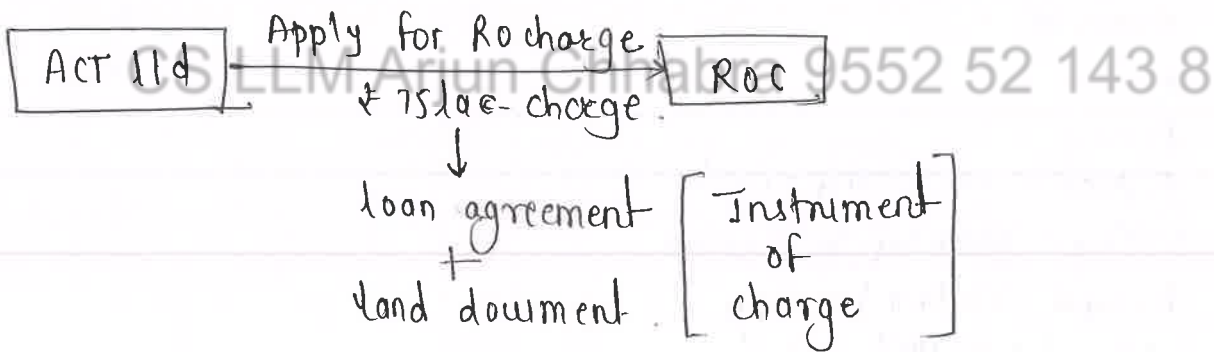 Apply for Rocharge
ACT ltd
ROC
CS LLM Arjun Chhabra 9552 52 143 8
₹ 75lac- charge.
↓
loan agreement
+
land doument.
[ Instrument
of
charge ]